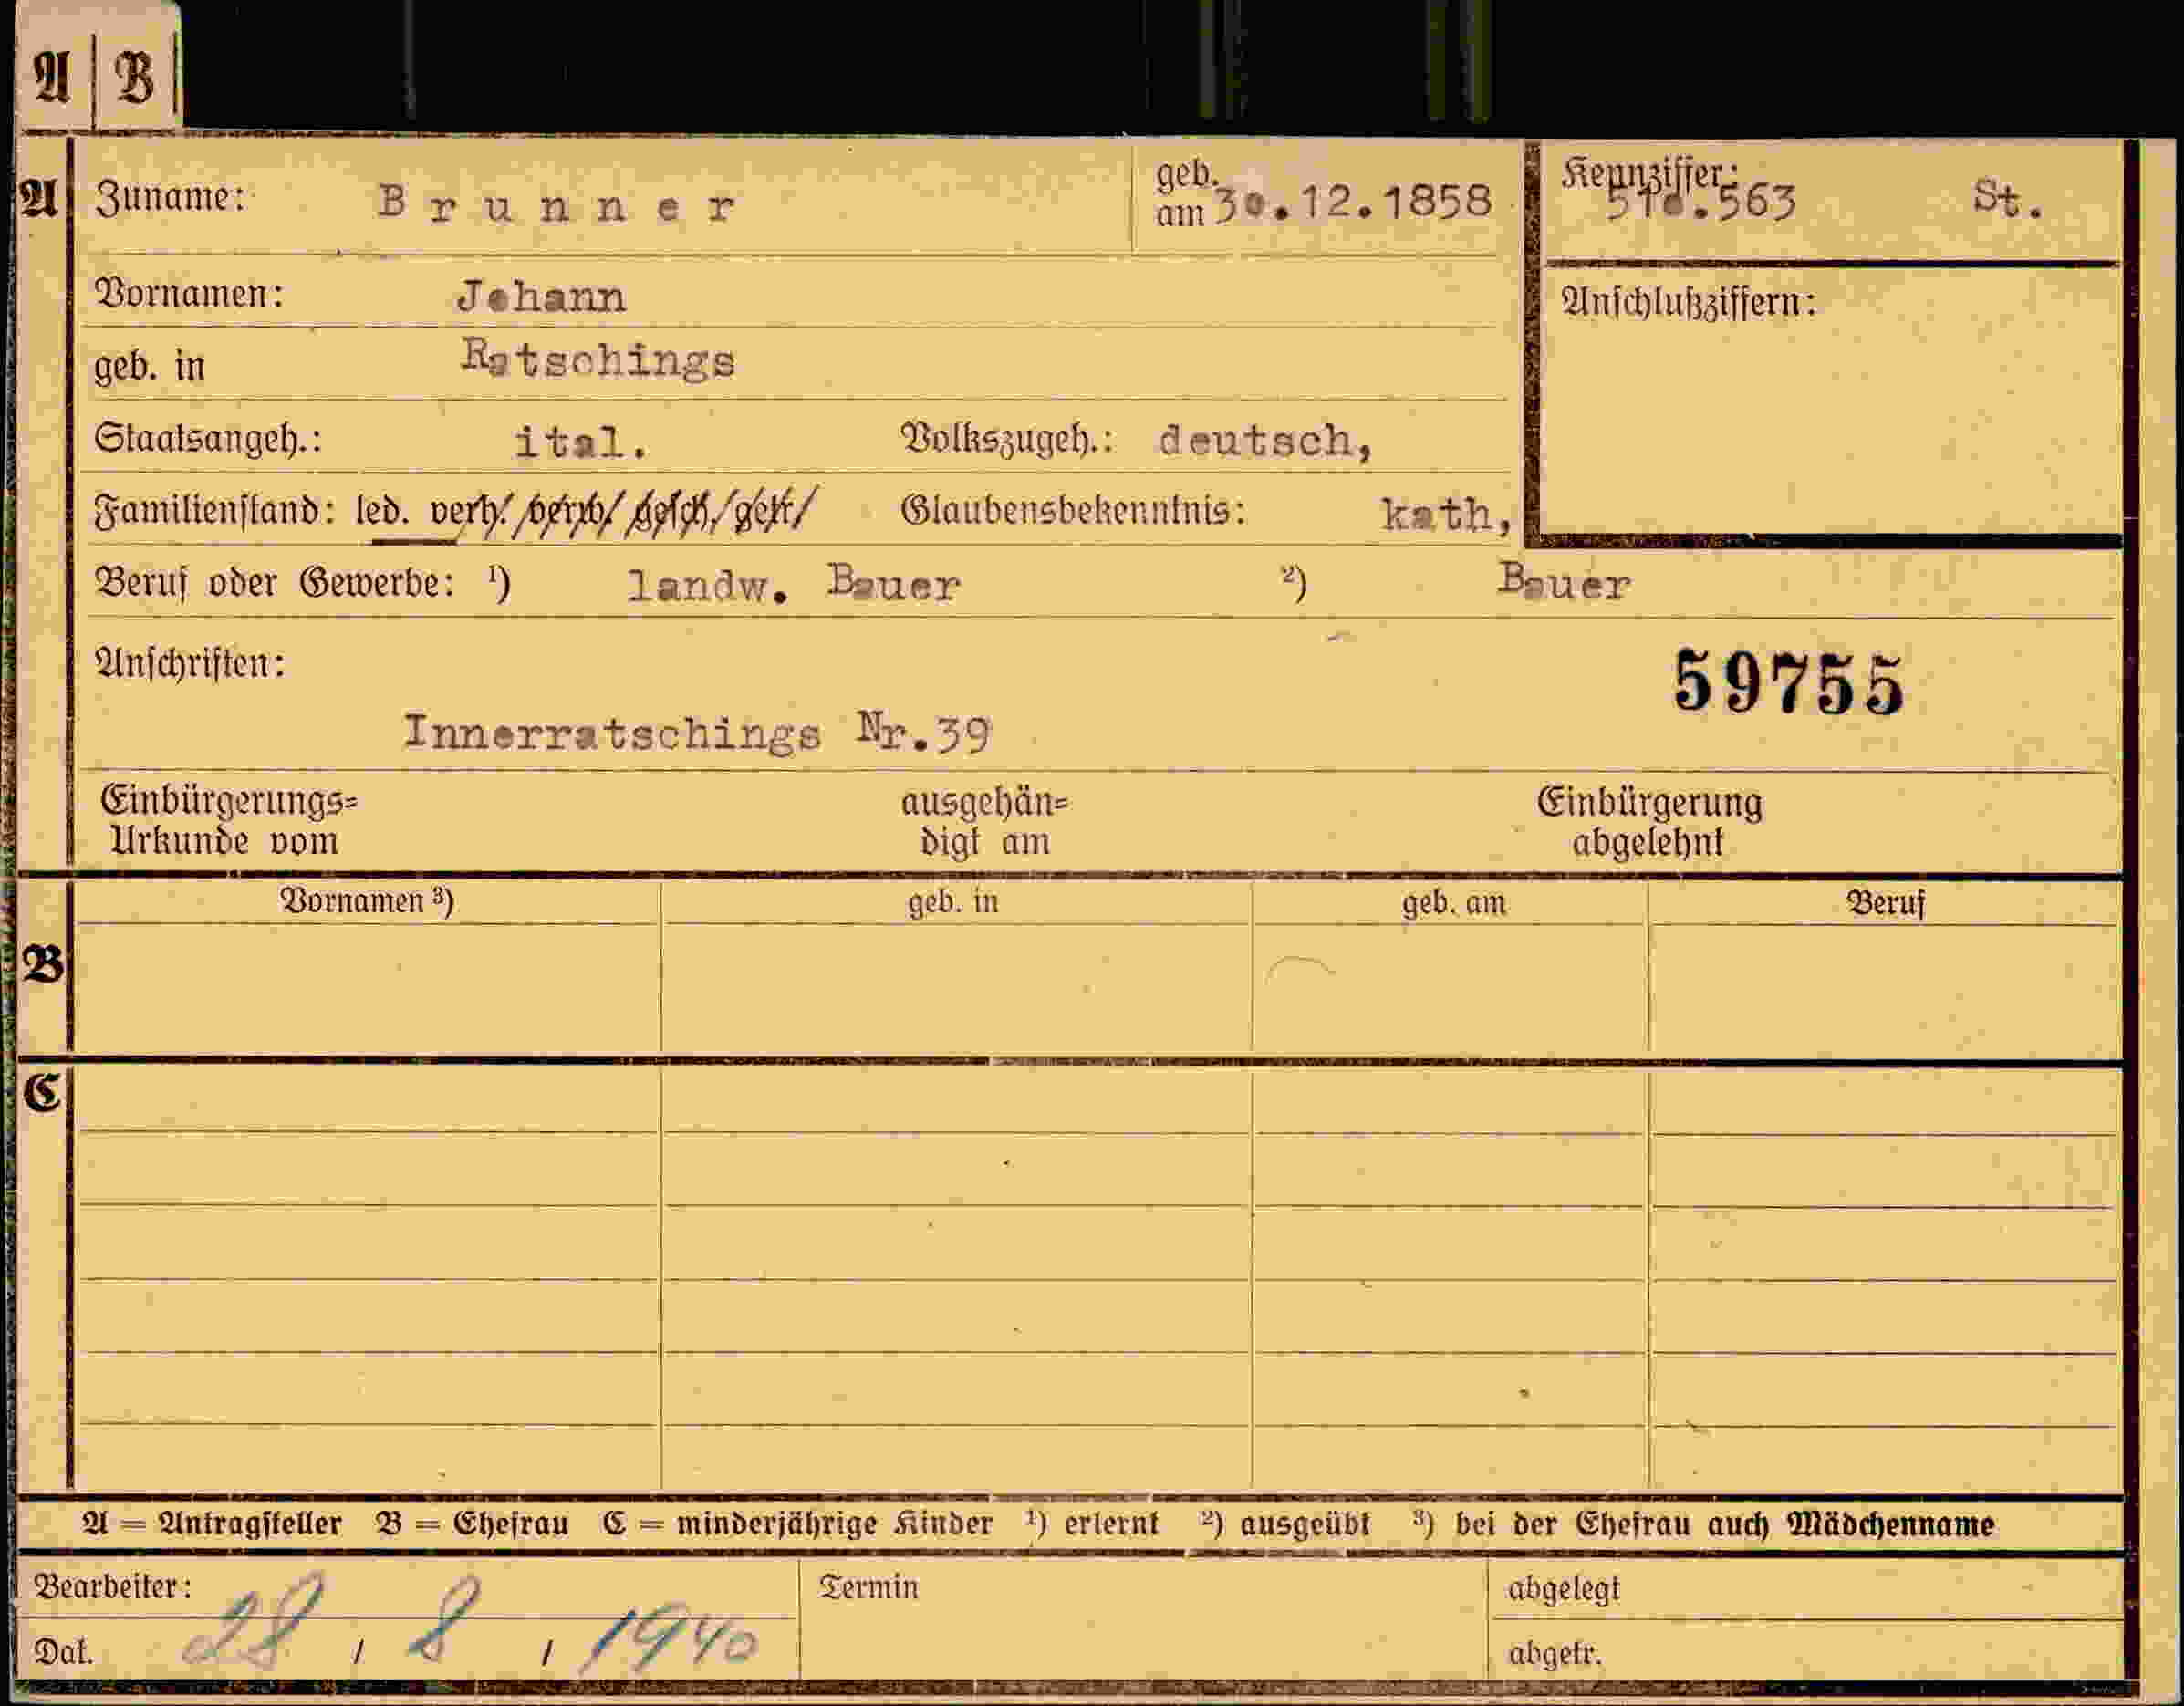 A | B
A Zuname: Brunner geb. am 30.12.1858 Kennziffer: 510.563 St.
Vornamen: Johann Anschlußziffern:
geb. in Ratschings
Staatsangeh.: ital. Volkszugeh.: deutsch,
Familienstand: led. verh. verw. gesch. getr. Glaubensbekenntnis: kath,
Beruf oder Gewerbe: ¹) landw. Bauer ²) Bauer
Anschriften:
59755
Innerratschings Nr.39
Einbürgerungs= ausgehän= Einbürgerung
Urkunde vom digt am abgelehnt
Vornamen ³) geb. in geb. am Beruf
B
C
A = Antragsteller B = Ehefrau C = minderjährige Kinder ¹) erlernt ²) ausgeübt ³) bei der Ehefrau auch Mädchenname
Bearbeiter: Termin abgelegt
Dat. 28 / 8 / 1940 abgetr.